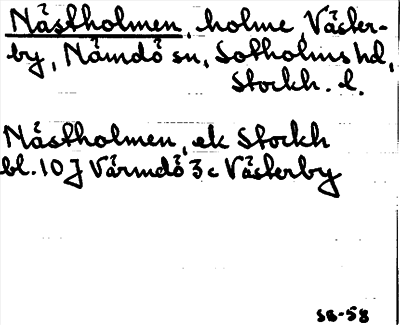 Nästholmen, holme, Väster-
by, Nämdö sn, Sotholms hd,
Stockh. l.
Nästholmen, ek Stockh
bl. 10 J Värmdö 3c Västerby
SB-58